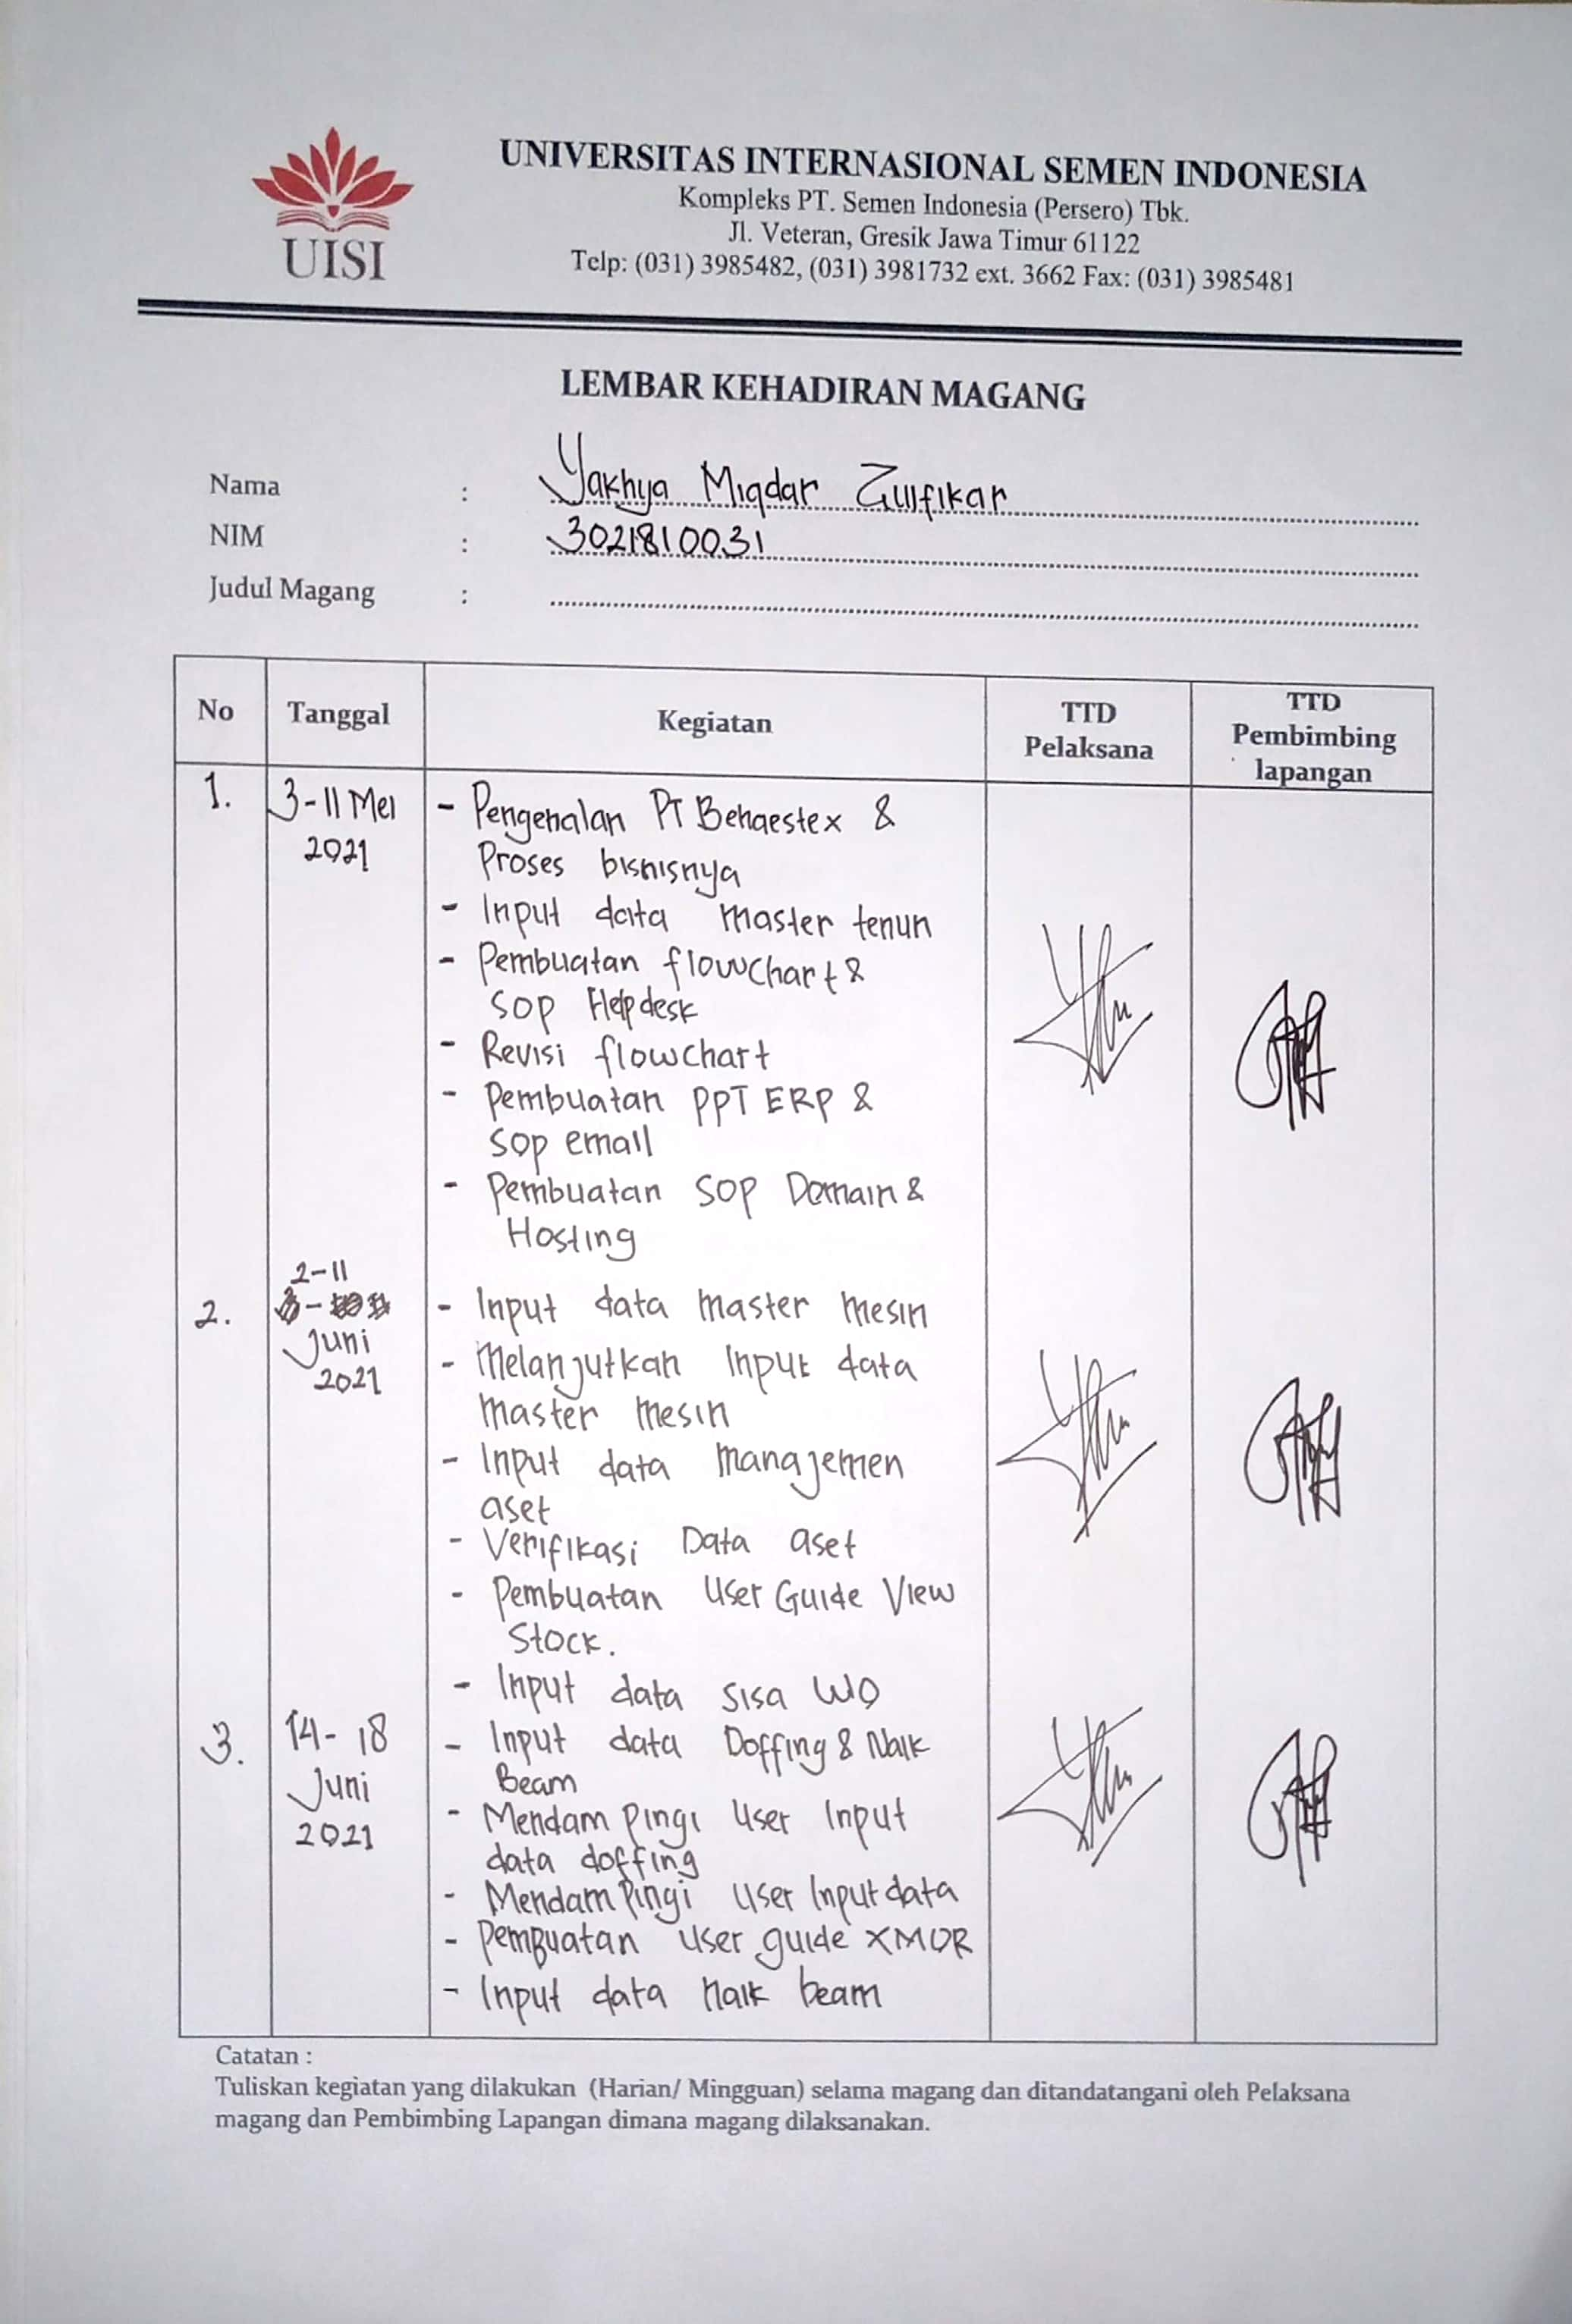 UISI
UNIVERSITAS INTERNASIONAL SEMEN INDONESIA
Kompleks PT. Semen Indonesia (Persero) Tbk.
Jl. Veteran, Gresik Jawa Timur 61122
Telp: (031) 3985482, (031) 3981732 ext. 3662 Fax: (031) 3985481
LEMBAR KEHADIRAN MAGANG
Nama : Yakhya Miqdar Zulfikar
NIM : 3021810031
Judul Magang :
No Tanggal Kegiatan TTD Pelaksana TTD Pembimbing lapangan
1. 3-11 Mei 2021
- Pengenalan PT Behaestex &
Proses bisnisnya
- Input data master tenun
- Pembuatan flowchart &
SOP Helpdesk
- Revisi flowchart
- Pembuatan PPT ERP &
Sop email
- Pembuatan SOP Domain &
Hosting
2. 2-11 Juni 2021
- Input data master mesin
- Melanjutkan Input data
master mesin
- Input data manajemen
aset
- Verifikasi Data aset
- Pembuatan User Guide View
Stock.
- Input data sisa WO
3. 14-18 Juni 2021
- Input data Doffing & Naik
Beam
- Mendampingi User Input
data doffing
- Mendampingi User Input data
- Pembuatan user guide XMOR
- Input data naik beam
Catatan :
Tuliskan kegiatan yang dilakukan (Harian/ Mingguan) selama magang dan ditandatangani oleh Pelaksana
magang dan Pembimbing Lapangan dimana magang dilaksanakan.